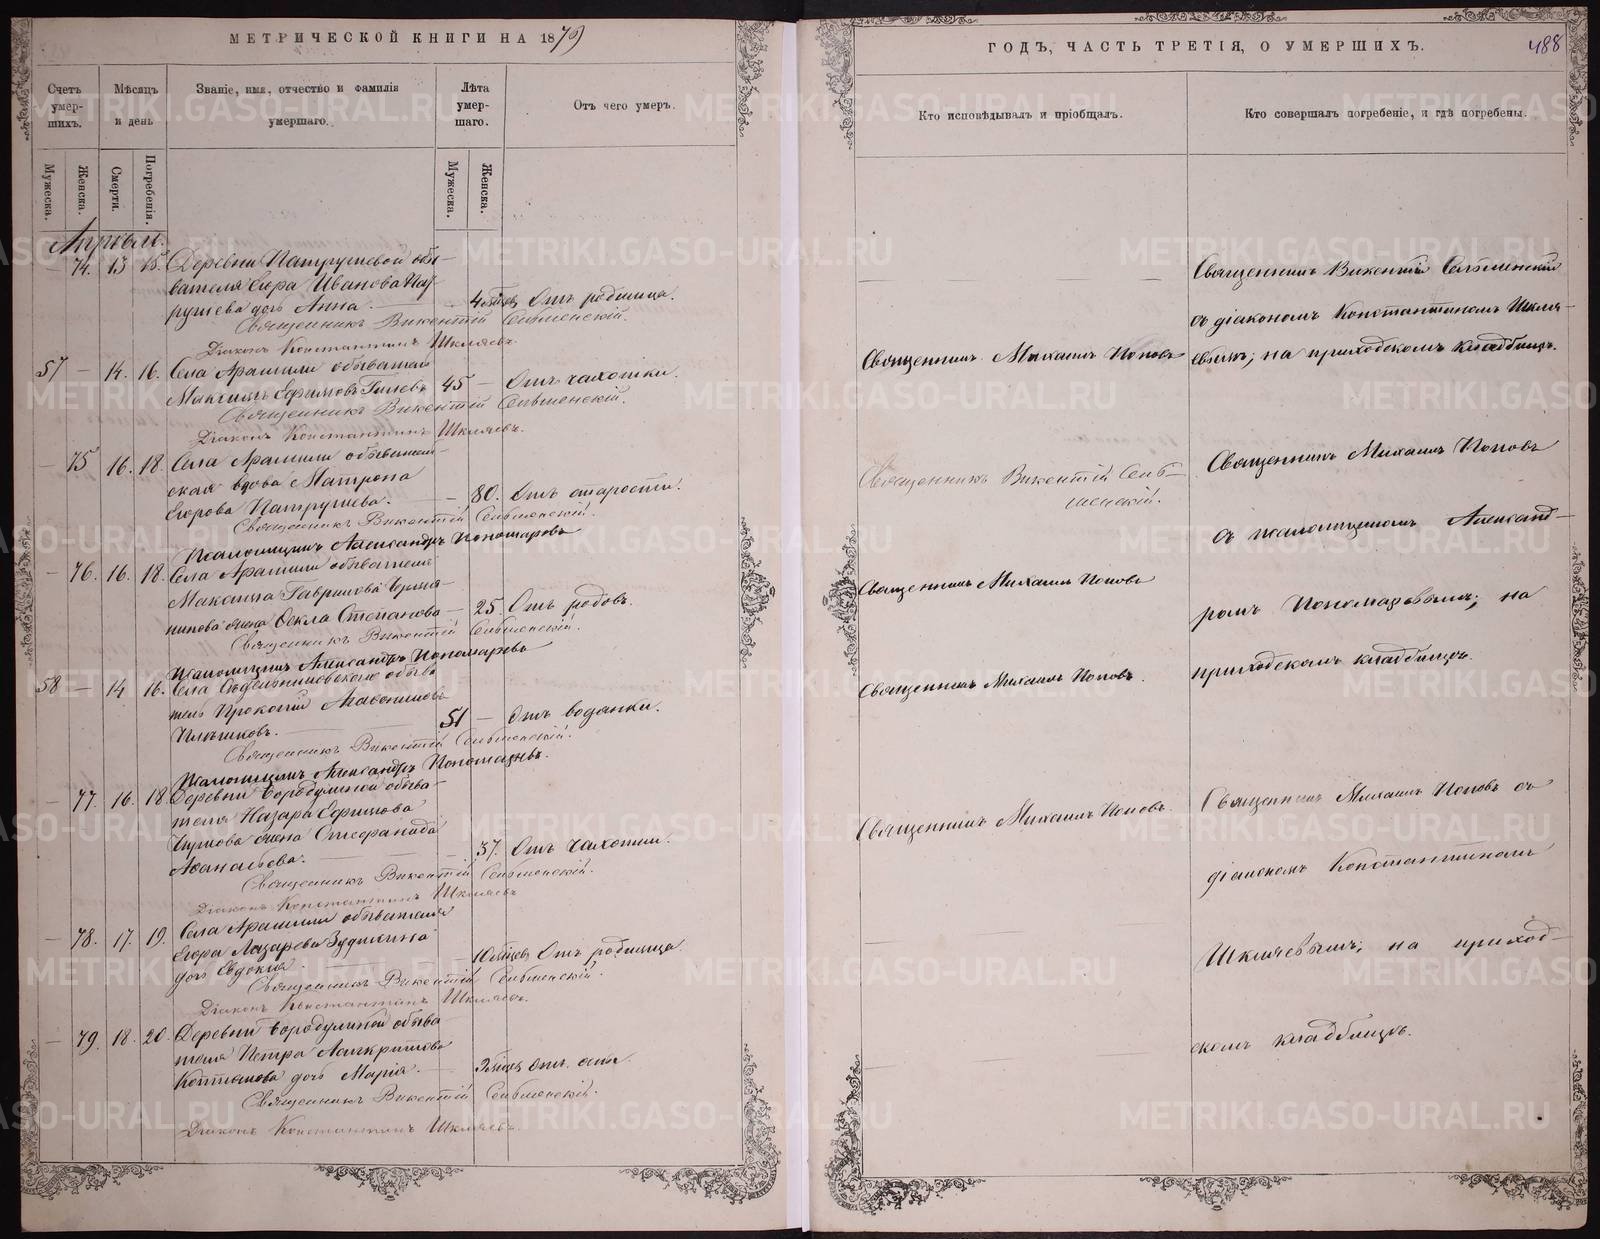 МЕТРИЧЕСКОЙ КНИГИ НА 1879
Счетъ умер-шихъ.
Мѣсяцъ и день
Званіе, имя, отчество и фамилія умершаго.
Лѣта умер-шаго.
Отъ чего умеръ.
Мужеска.
Женска.
Смерти.
Погребенія.
Мужеска.
Женска.
Апрѣль.
— 74. 13 15. Деревни Патрушевой обы-
вателя Егора Иванова Пат-
рушева дочь Анна. 4 мѣсяц. Отъ родимца.
Священникъ Викентій Сивменскій.
Діаконъ Константинъ Шкляевъ.
57 — 14. 16. Села Арамили обыватель
Максимъ Ефимовъ 45 — Отъ чахотки.
Священникъ Викентій Сивменскій.
Діаконъ Константинъ Шкляевъ.
— 75 16. 18. Села Арамили обыватель-
ская вдова Матрона
Егорова Патрушева. — 80. Отъ старости.
Священникъ Викентій Сивменскій.
Псаломщикъ Александръ Пономаревъ
— 76. 16. 18. Села Арамили обывателя
Максима Гаврилова
жена Фекла Степанова — 25. Отъ родовъ.
Священникъ Викентій Сивменскій.
Псаломщикъ Александръ Пономаревъ
58 — 14 16. Села обыва-
тель Прокопій
51 — Отъ водянки.
Священникъ Викентій Сивменскій.
Псаломщикъ Александръ Пономаревъ.
— 77. 16. 18. Деревни Бородулиной обыва-
теля Назара Ефимова
жена Стефанида
Афанасьева. — 37. Отъ чахотки.
Священникъ Викентій Сивменскій.
Діаконъ Константинъ Шкляевъ
— 78. 17. 19. Села Арамили обывателя
Егора Лазарева
дочь Евдокія. 10 мѣсяц. Отъ родимца.
Священникъ Викентій Сивменскій.
Діаконъ Константинъ Шкляевъ.
— 79. 18. 20. Деревни Бородулиной обыва-
теля Петра
дочь Марія. 3 мѣсяц. Отъ оспы.
Священникъ Викентій Сивменскій.
Діаконъ Константинъ Шкляевъ.
ГОДЪ, ЧАСТЬ ТРЕТІЯ, О УМЕРШИХЪ.
488
Кто исповѣдывалъ и пріобщалъ.
Кто совершалъ погребеніе, и гдѣ погребены.
Священникъ Викентій Сивменскій
съ діакономъ Константиномъ Шкля-
евымъ; на приходскомъ кладбищѣ.
Священникъ Михаилъ Поповъ
Священникъ Викентій Сив-
менскій.
Священникъ Михаилъ Поповъ
съ псаломщикомъ Александ-
ромъ Пономаревымъ; на
приходскомъ кладбищѣ.
Священникъ Михаилъ Поповъ
Священникъ Михаилъ Поповъ.
Священникъ Михаилъ Поповъ.
Священникъ Михаилъ Поповъ съ
діакономъ Константиномъ
Шкляевымъ; на приход-
скомъ кладбищѣ.
METRIKI.GASO-URAL.RU